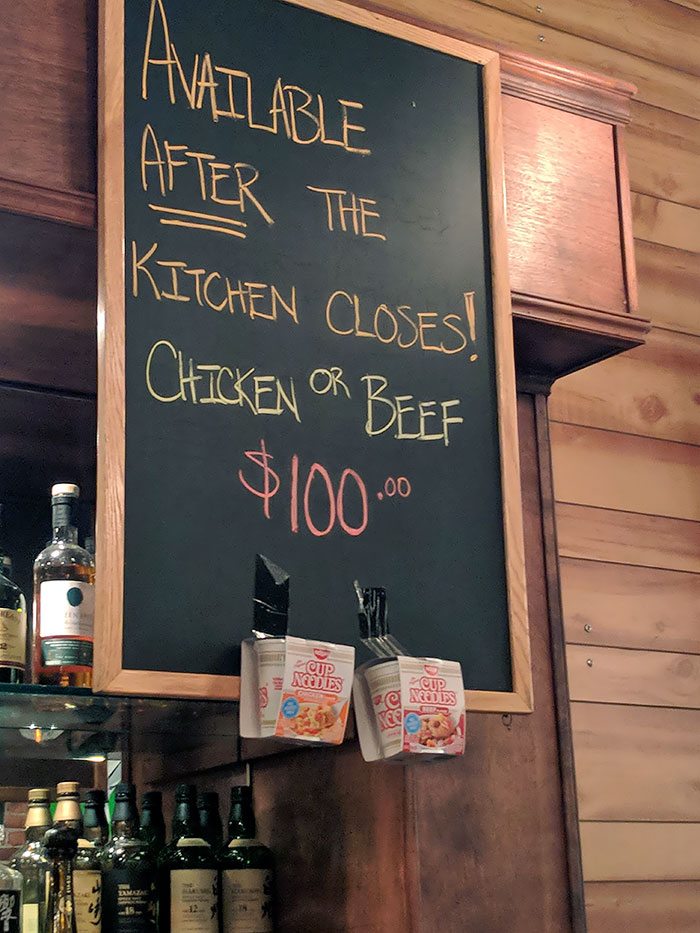 AVAILABLE
AFTER THE
KITCHEN CLOSES!
CHICKEN OR BEEF
$100.00
CUP
NOODLES
CHICKEN
CUP
NOODLES
BEEF
THE
YAMAZAKI
18
THE
HAKUSHU
12
18
山崎
響